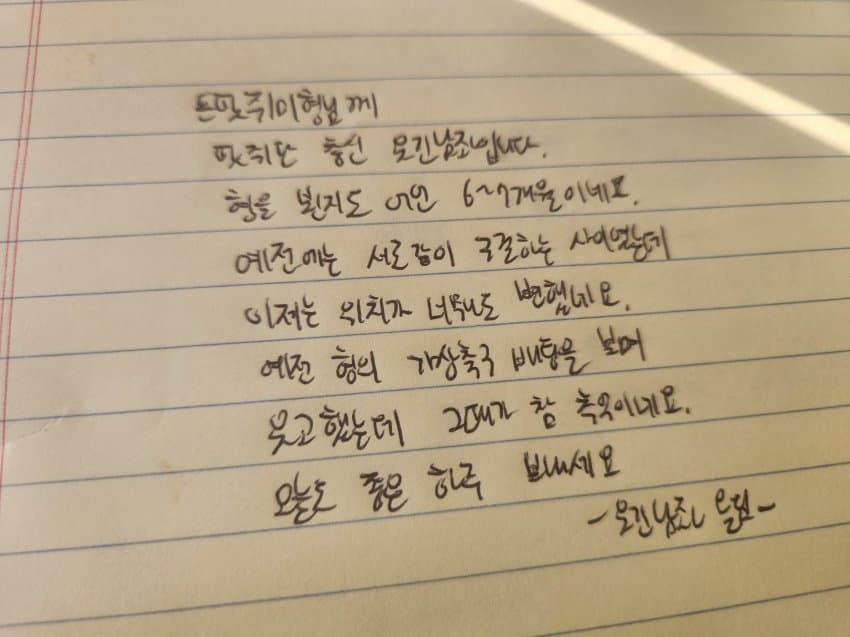 뜬팟쥐미형님께
팟쥐단 출신 모긴남조입니다.
형을 본지도 어언 6~7개월이네요.
예전에는 서로 같이 구걸하는 사이였는데
이제는 위치가 너무나도 변했네요.
예전 형의 가상축구 배팅을 보며
웃고했는데 그때가 참 추억이네요.
오늘도 좋은 하루 보내세요
-모긴남조 올림-